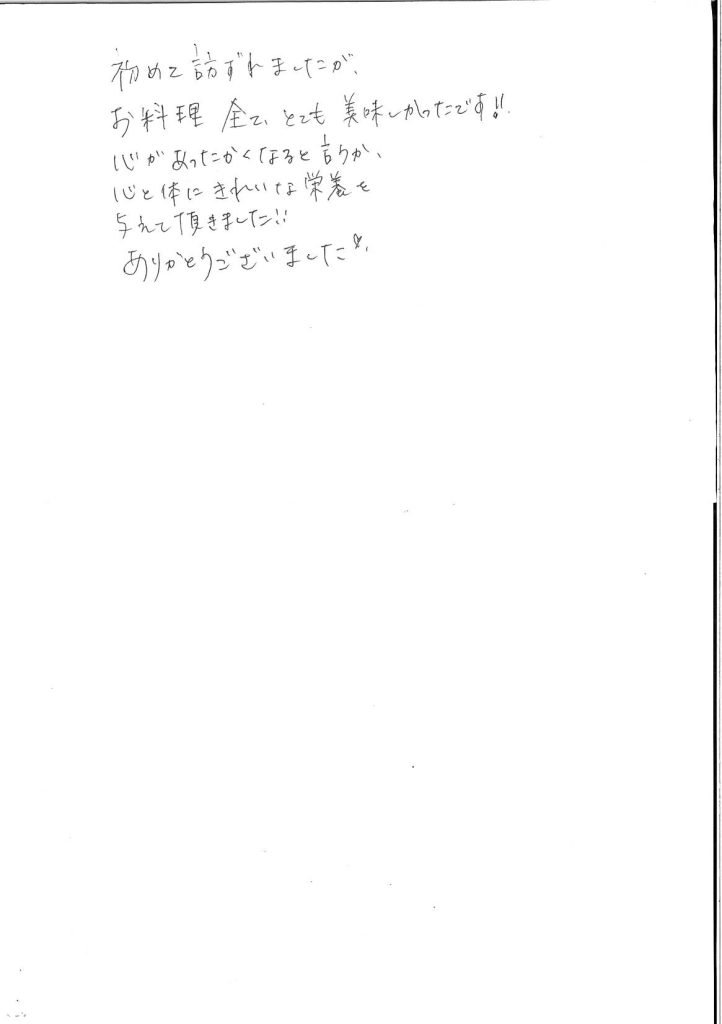 初めて訪ずれましたが、
お料理 全て、とても 美味しかったです!!
心があったかくなると言うか、
心と体に きれいな栄養を
与えて頂きました!!
ありがとうございました♡.